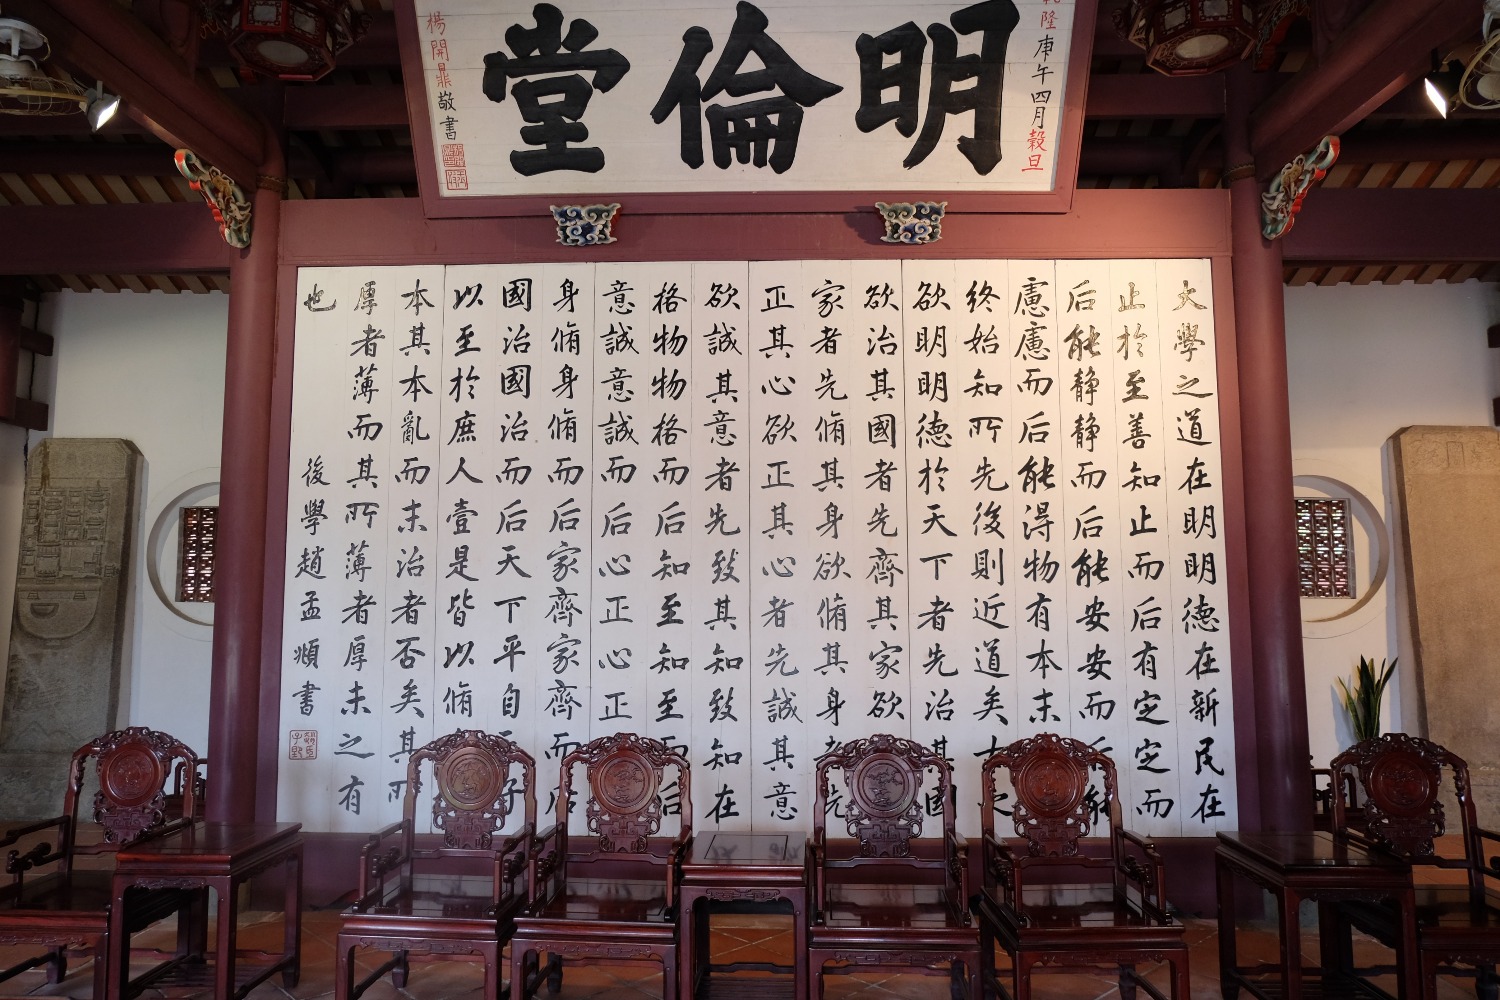 明倫堂
隆庚午四月穀旦
楊開鼎敬書
大學之道在明明德在新民在
止於至善知止而后有定定而
后能靜靜而后能安安而后能
慮慮而后能得物有本末
終始知所先後則近道矣古之
欲明明德於天下者先治其國
欲治其國者先齊其家欲
家者先脩其身欲脩其身者先
正其心欲正其心者先誠其意
欲誠其意者先致其知致知在
格物物格而后知至知至而后
意誠意誠而后心正心正
身脩身脩而后家齊家齊而后
國治國治而后天下平自天子
以至於庶人壹是皆以脩
本其本亂而末治者否矣其所
厚者薄而其所薄者厚未之有
也
後學趙孟頫書